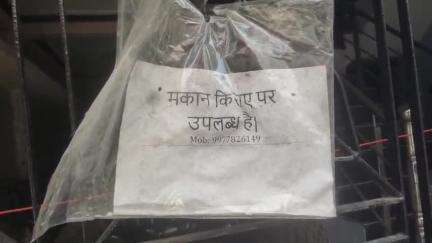 मकान किराए पर
उपलब्ध है।
Mob: 9977826149